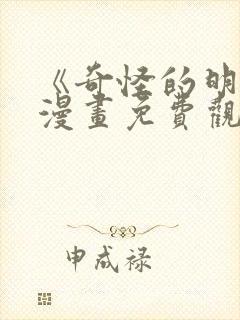 《奇怪的明
漫畫免費觀
申成禄